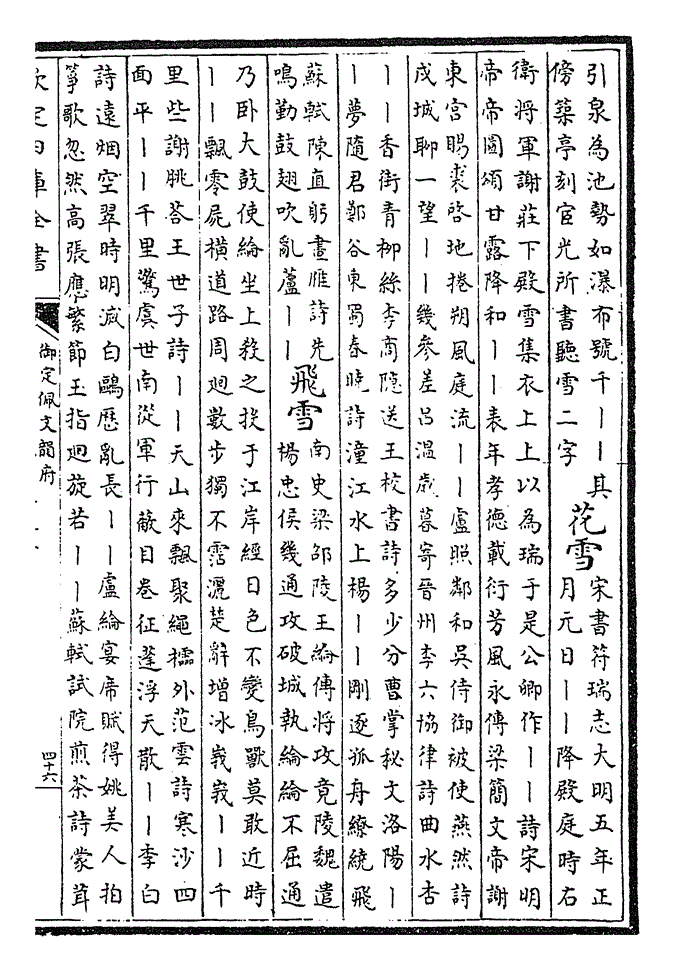 引泉為池勢如瀑布號千丨丨其
傍築亭刻宦光所書聽雪二字
花雪
宋書符瑞志大明五年正
月元日丨丨降殿庭時右
衛將軍謝莊下殿雪集衣上上以為瑞于是公卿作丨丨詩宋明
帝帝圖頌甘露降和丨丨表年孝德載衍芳風永傳梁簡文帝謝
東宮賜裘啓地捲朔風庭流丨丨盧照鄰和吳侍御被使燕然詩
戍城聊一望丨丨幾參差吕温歲暮寄晉州李六協律詩曲水杏
丨丨香街青柳絲李商隱送王校書詩多少分曹掌秘文洛陽丨
丨夢隨君鄭谷東蜀春晚詩潼江水上楊丨丨剛逐孤舟繚繞飛
蘇軾陳直躬畫雁詩先
鳴勤鼓翅吹亂蘆丨丨
飛雪
南史梁邵陵王綸傳將攻竟陵魏遣
楊忠侯幾通攻破城執綸綸不屈通
乃卧大鼓使綸坐上殺之投于江岸經日色不變鳥獸莫敢近時
丨丨飄零屍横道路周迴數步獨不霑灑楚辭增冰峩峩丨丨千
里些謝朓荅王世子詩丨丨天山來飄聚繩櫺外范雲詩寒沙四
面平丨丨千里驚虞世南從軍行蔽日卷征蓬浮天散丨丨李白
詩遠烟空翠時明滅白鷗歷亂長丨丨盧綸宴席賦得姚美人拍
箏歌忽然高張應繁節玉指迴旋若丨丨蘇軾試院煎茶詩蒙茸
欽定四庫全書
御定佩文韻府
四十六